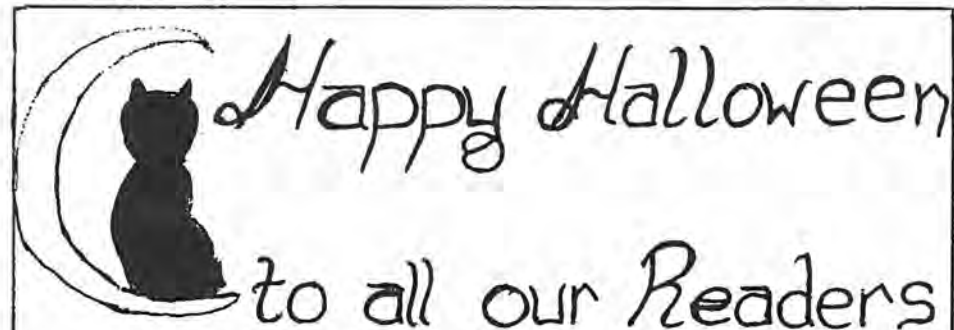 Happy Halloween
to all our Readers